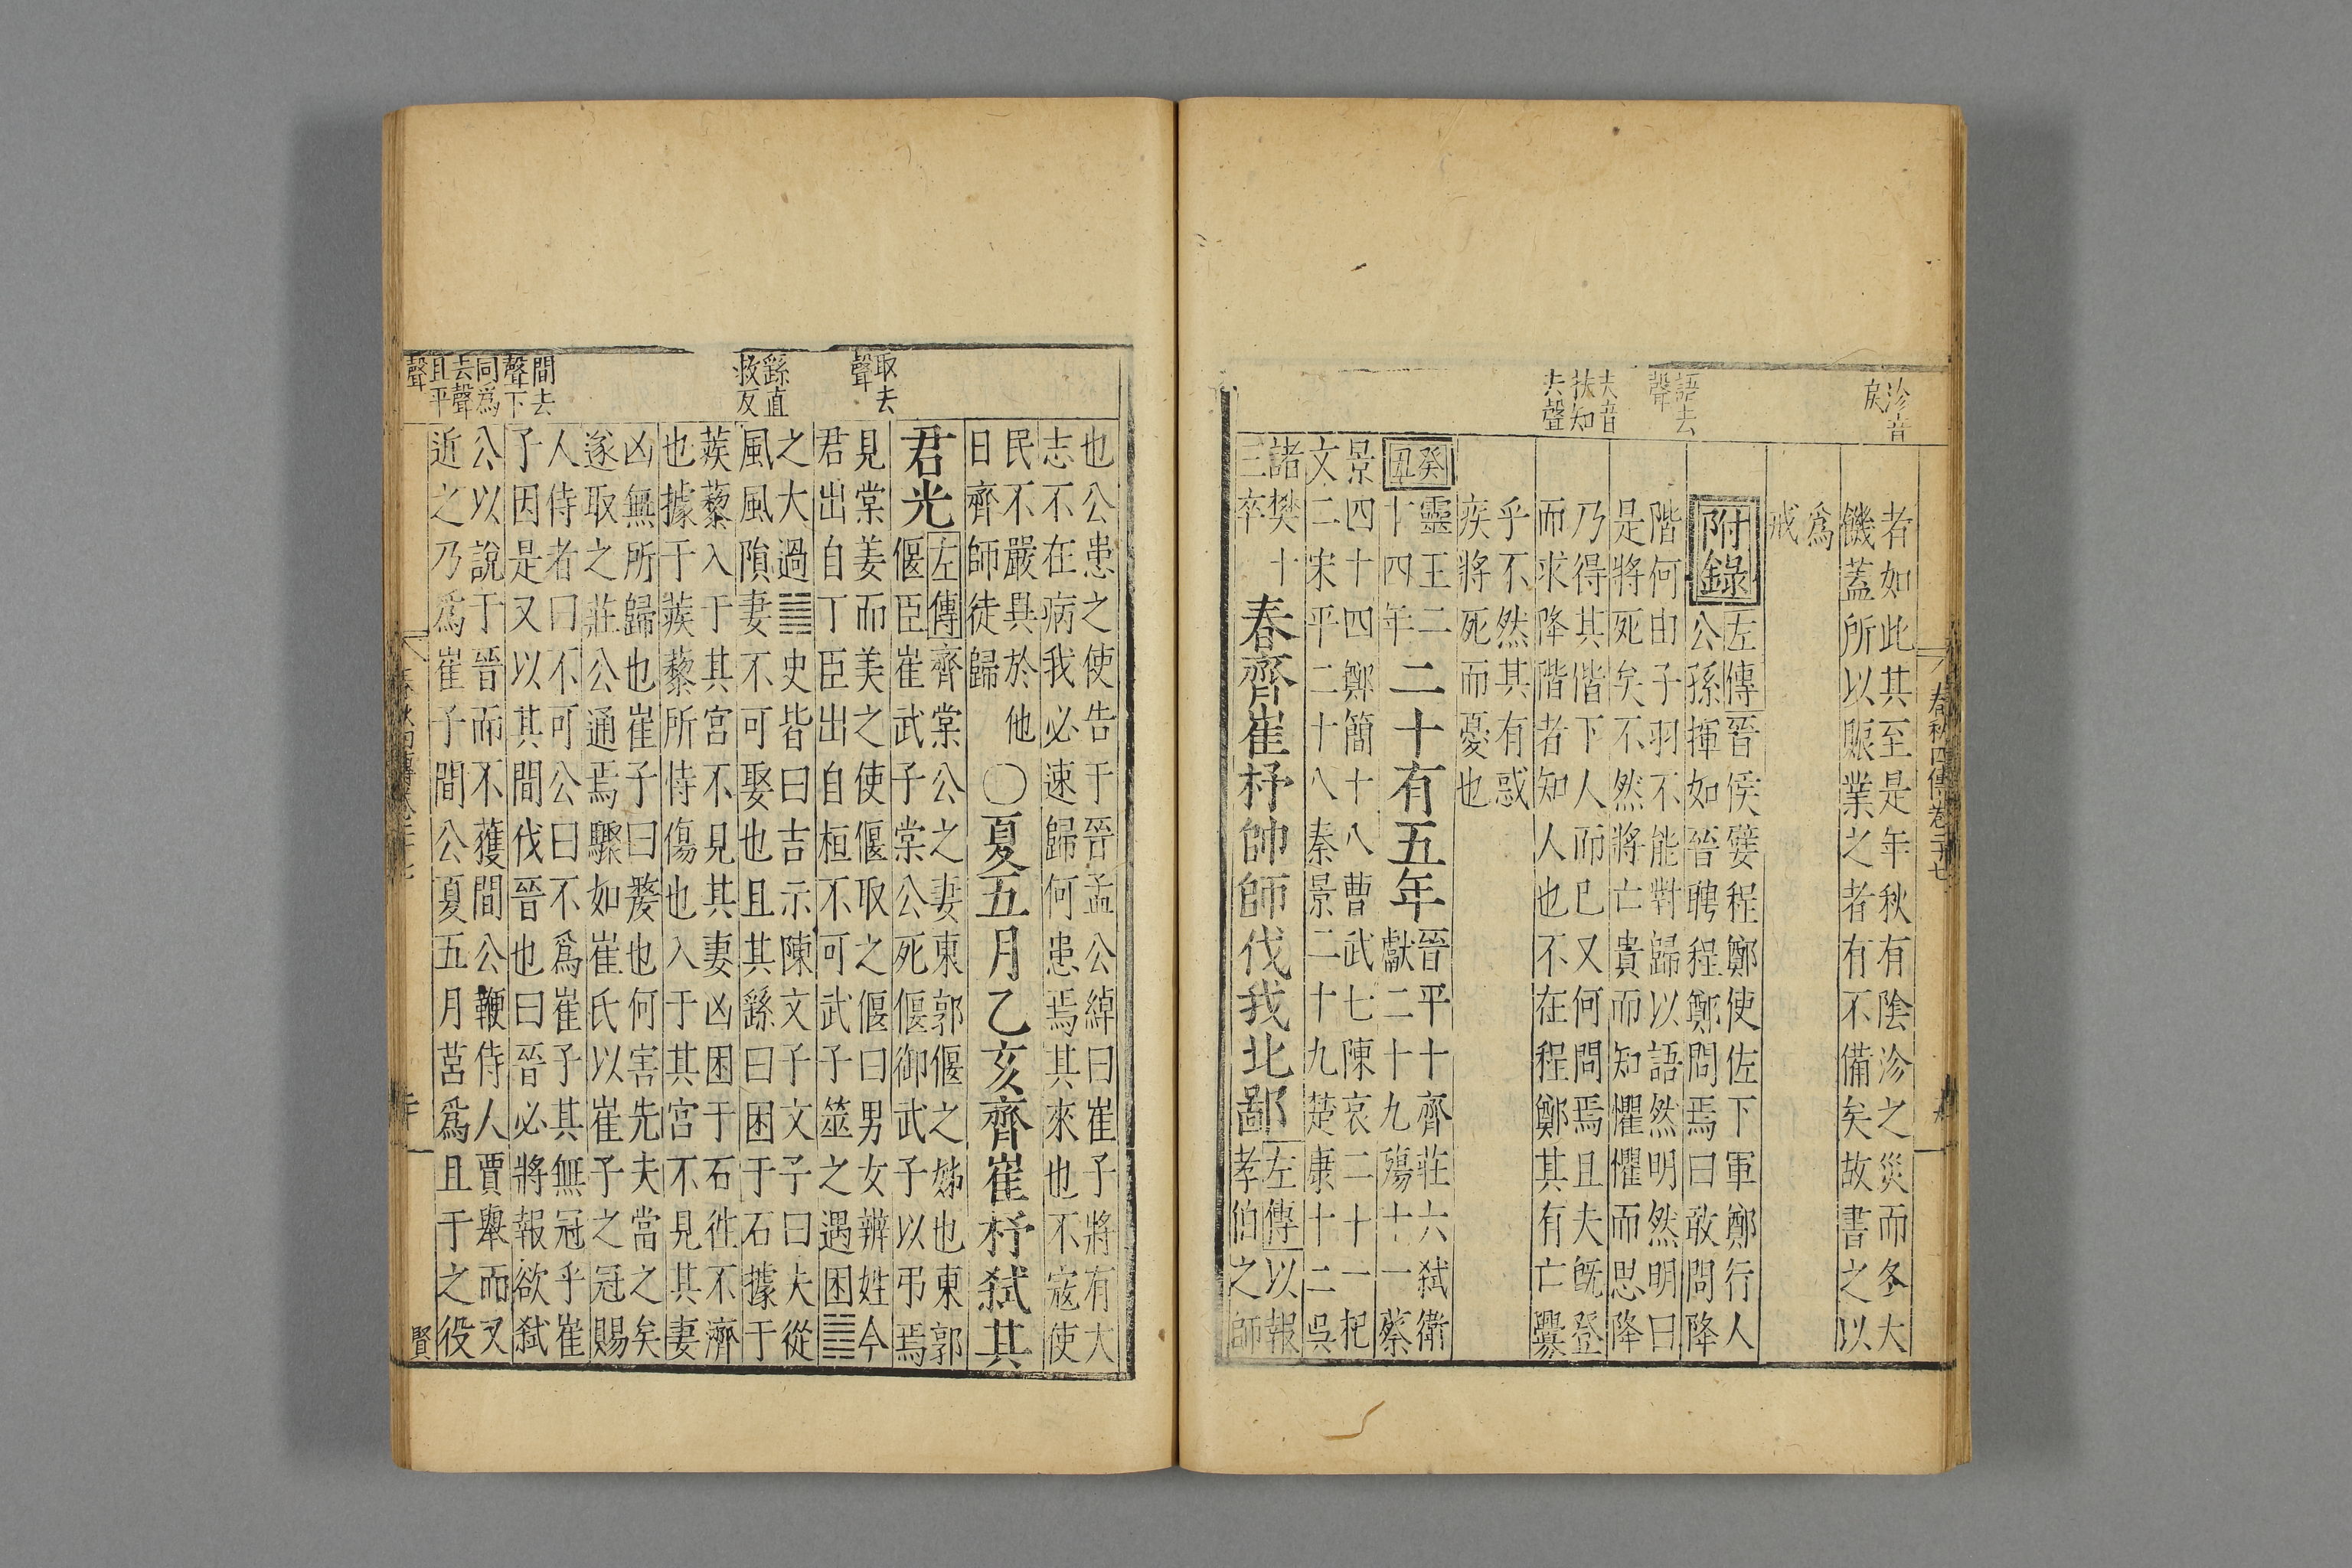 春秋四傳卷二十七
沴音
戾
語去
聲
夫音
扶知
去聲
者如此其至是年秋有陰沴之災而冬大
饑蓋所以賑業之者有不備矣故書之以
爲
戒
附錄
左傳晉侯嬖程鄭使佐下軍鄭行人
公孫揮如晉聘程鄭問焉曰敢問降
階何由子羽不能對歸以語然明然明曰
是將死矣不然將亡貴而知懼懼而思降
乃得其階下人而已又何問焉且夫既登
而求降階者知人也不在程鄭其有亡釁
乎不然其有惑
疾將死而憂也
癸
丑
靈王二
十四年
二十有五年
晉平十齊莊六弑衛
獻二十九殤十一蔡
景四十四鄭簡十八曹武七陳哀二十一杞
文二宋平二十八秦景二十九楚康十二吳
諸樊十
三卒
春齊崔杼帥師伐我北鄙
左傳以報
孝伯之師
取去
聲
繇直
救反
間去
聲下
同爲
去聲
且平
聲
也公患之使告于晉孟公綽曰崔子將有大
志不在病我必速歸何患焉其來也不寇使
民不嚴異於他
日齊師徒歸
〇夏五月乙亥齊崔杼弑其
君光
左傳齊棠公之妻東郭偃之姊也東郭
偃臣崔武子棠公死偃御武子以弔焉
見棠姜而美之使偃取之偃曰男女辨姓今
君出自丁臣出自桓不可武子筮之遇困䷮
之大過䷛史皆曰吉示陳文子文子曰夫從
風風隕妻不可娶也且其繇曰困于石據于
蒺藜入于其宮不見其妻凶困于石徃不濟
也據于蒺藜所恃傷也入于其宮不見其妻
凶無所歸也崔子曰嫠也何害先夫當之矣
遂取之莊公通焉驟如崔氏以崔子之冠賜
人侍者曰不可公曰不爲崔子其無冠乎崔
子因是又以其間伐晉也曰晉必將報欲弑
公以說于晉而不獲間公鞭侍人賈舉而又
近之乃爲崔子間公夏五月莒爲且于之役
賢